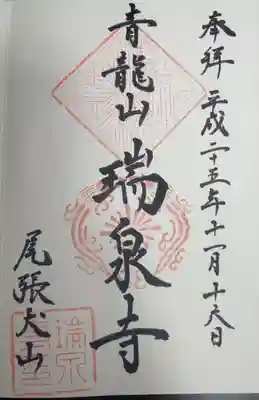 奉拝 平成二十五年十一月十六日
青龍山 瑞泉寺
尾張犬山